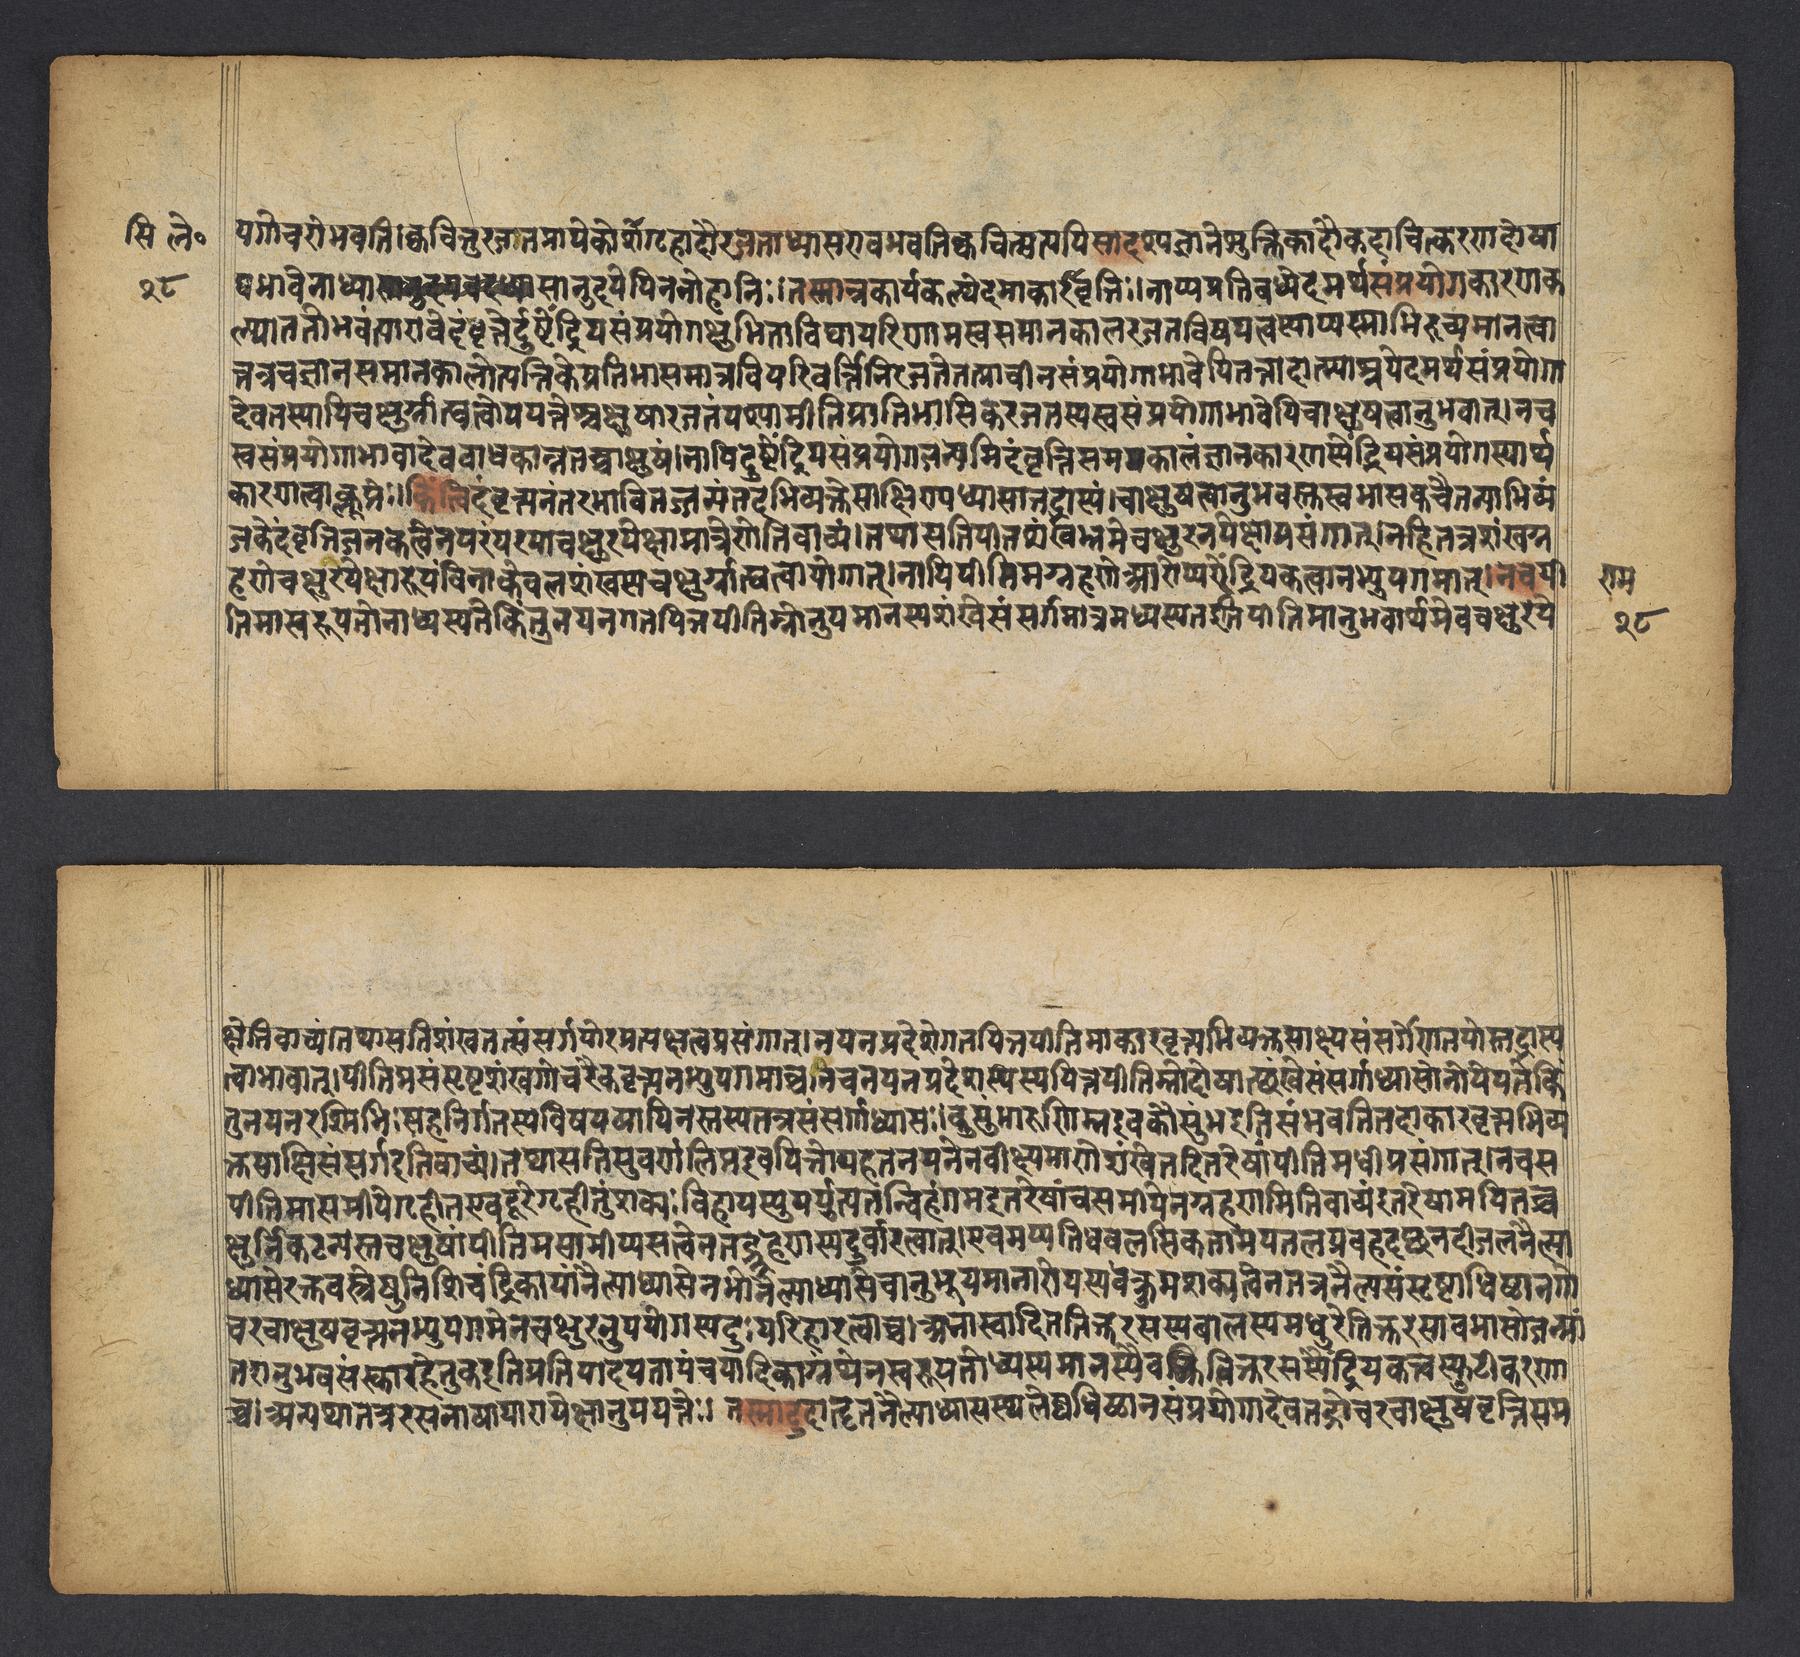 सि ले॰ पगोचरो भवति। क्वचित्तु रजतमापेकोशगृहादौ रजताध्यास एव भवति क्वचित्सत्यपि सादृश्यज्ञाने शुक्तिकादौ कदाचित्करणदोषा
२८ द्यभावेनाध्यासानुदयवदध्यासानुदयेपि न नो हानिः॥ तस्मान्न कार्यकल्प्येदमाकारवृत्तिः॥ नाप्यप्रतिबध्येदमर्थसंप्रयोगकारणक
ल्प्या ततो भवंत्या एवेदंवृत्तेर्दुष्टेंद्रियसंप्रयोगक्षुभिताविद्यापरिणामस्वसमानकालरजतविषयत्वस्याप्यस्माभिरुच्यमानत्वा
त्तत्र च ज्ञानसमानकालोत्पत्तिके प्रतिभासमात्रविपरिवर्त्तिनि रजते तत्प्राचीनसंप्रयोगाभावेपि तत्तादात्म्याश्रयेदमर्थसंप्रयोगा
देव तस्यापि चक्षुर्ग्राह्यत्वोपपत्तेश्चक्षुषा रजतं पश्यामीति प्रातिभासिकरजतस्य स्वसंप्रयोगाभावेपि चाक्षुषत्वानुभवात्। न च
स्वसंप्रयोगाभावादेव बाधकान्न तच्चाक्षुषं। नापि दुष्टेंद्रियसंप्रयोगजन्यमिदंवृत्तिसमकालं ज्ञानकारणस्येंद्रियसंप्रयोगस्यार्थ
कारणत्वाक्लृप्तेः। किं त्विदंवृत्त्यनंतरभावि तज्जन्यं तदभिव्यक्ते साक्षिण्यध्यासात्तद्भास्यं। चाक्षुषत्वानुभवस्तु स्वभासकचैतन्याभिव्यं
जकेदंवृत्तिजनकत्वेन परंपरया चक्षुरपेक्षामात्रेणेति वाच्यं। तथा सति पीतशंखभ्रमे चक्षुरनपेक्षाप्रसंगात्। न हि तत्र शंखग्र
हणे चक्षुरपेक्षा रूपं विना केवलशंखस्य चक्षुर्ग्राह्यत्वायोगात्। नापि पीतिमग्रहणे आरोप्यस्यैंद्रियकत्वानभ्युपगमात्। न च पी राम
तिमा स्वरूपतो नाध्यस्यते किंतु नयनगतपित्तपीतिम्नोनुभूयमानस्य शंखे संसर्गमात्रमध्यस्यत इति पीतिमानुभवार्थमेव चक्षुरपे २८
क्षेति वाच्यं। तथा सति शंखतत्संसर्गयोरप्रत्यक्षत्वप्रसंगात्। नयनप्रदेशगतपित्तपीतिमाकारवृत्त्यभिव्यक्तसाक्ष्यसंसर्गेण तयोस्तद्भास्य
त्वाभावात्। पीतिमसंसृष्टशंखगोचरैकवृत्त्यनभ्युपगमाच्च। न च नयनप्रदेशस्थस्य पित्तपीतिम्नो दोषाच्छंखे संसर्गाध्यासो नोपेयते किं
तु नयनरश्मिभिः सह निर्गतस्य विषयव्यापिनस्तस्य तत्र संसर्गाध्यासः। कुसुंभारुणिम्न इव कौसुंभ इति संभवति तदाकारवृत्त्यभिव्य
क्तसाक्षिसंसर्ग इति वाच्यं। तथा सति सुवर्णलिप्त इव पित्तोपहतनयनेन वीक्ष्यमाणे शंखे तदितरेषां पीतिमधीप्रसंगात्। न च स
पीतिमा समीपे गृहीत एव दूरे गृहीतुं शक्यः विहायस्युपर्युत्पतन्विहंगम इतरेषां च समीपे न ग्रहणमिति वाच्यं इतरेषामपि तच्च
क्षुर्निकटन्यस्तचक्षुषां पीतिमसामीप्यसत्वेन तद्ग्रहणस्य दुर्वारत्वात्। एवमप्यतिधवलसिकतामयतलप्रवहदच्छनदीजलनैल्या
ध्यासे रक्तवस्त्रेषु निशि चंद्रिकायां नैल्याध्यासे नभोनैल्याध्यासे चानुभूयमानारोपस्य वक्तुमशक्यत्वेन तत्र नैल्यसंसृष्टाधिष्ठानगो
चरचाक्षुषवृत्त्यनभ्युपगमे न चक्षुरनुपयोगस्य दुःपरिहारत्वाच्च। अनास्वादिततिक्तरसस्य बालस्य मधुरे तिक्तरसावभासो जन्मां
तरानुभवसंस्कारहेतुक इति प्रतिपादयता पंचपादिकाग्रंथेन स्वरूपतोध्यस्यमानस्यैव तिक्तरसस्यैंद्रियकत्वस्फुटीकरणा
च्च। अन्यथा तत्र रसनाव्यापारापेक्षानुपपत्तेः। तस्मादुदाहृतनैल्याध्यासस्थले अधिष्ठानसंप्रयोगादेव तद्गोचरचाक्षुषवृत्तिसम